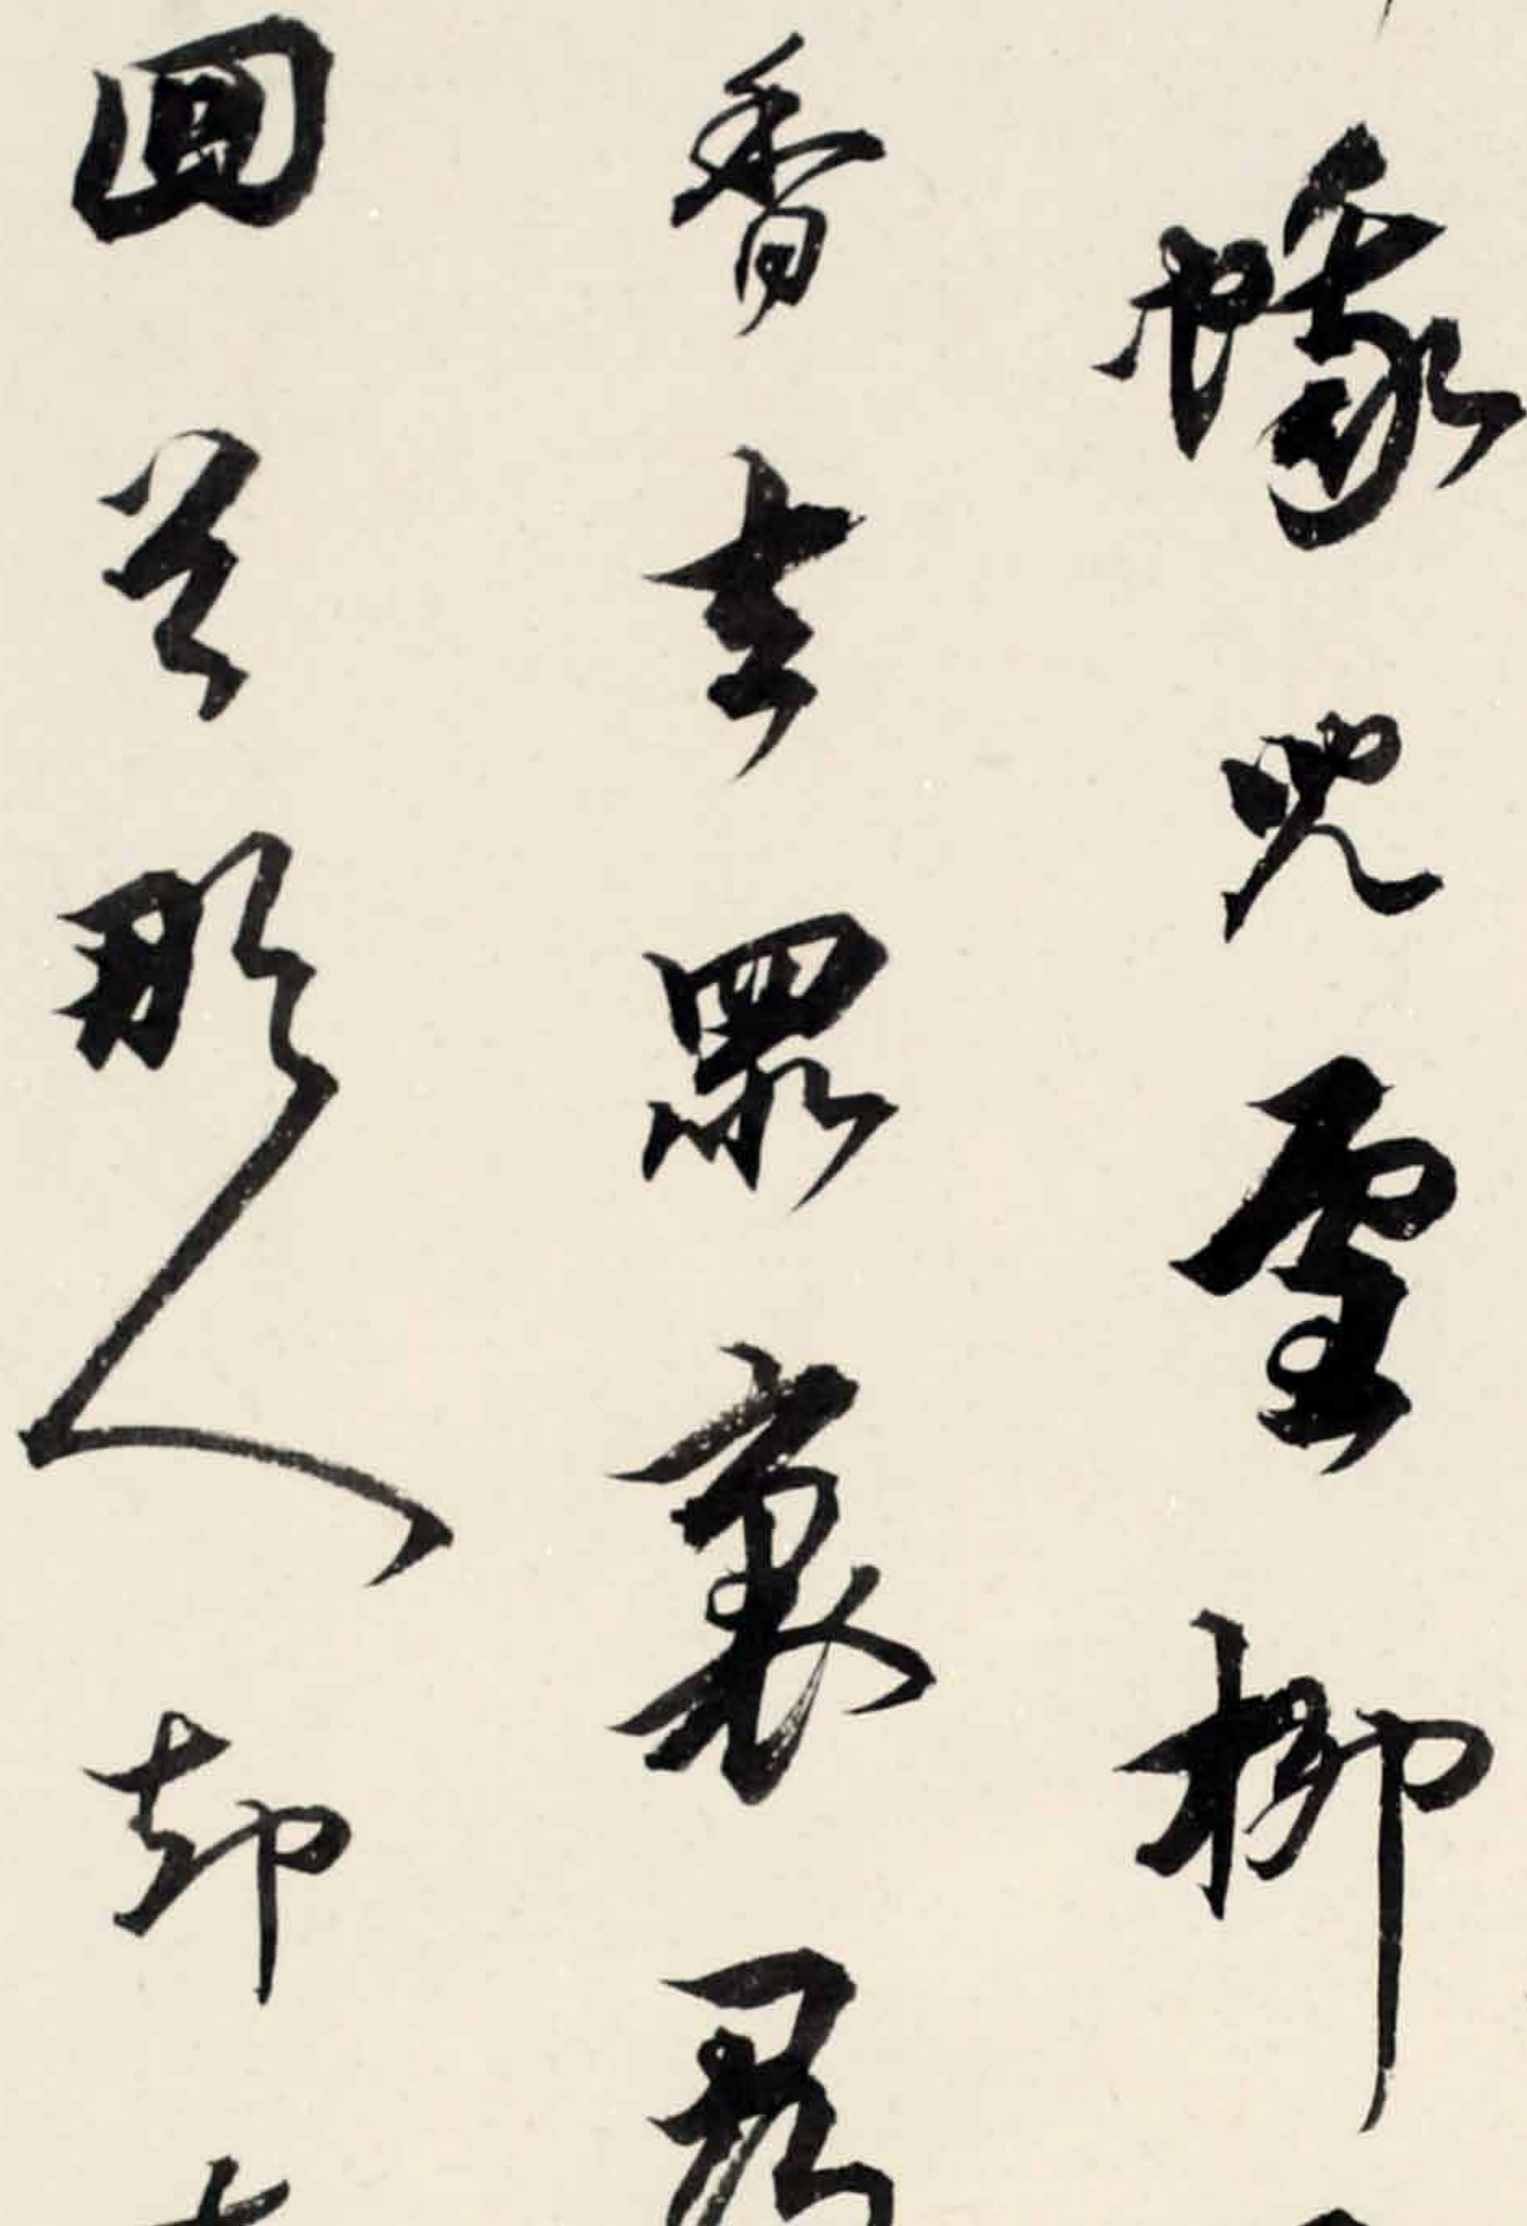 蛾兒雪柳
香去眾裏尋
回首那人却